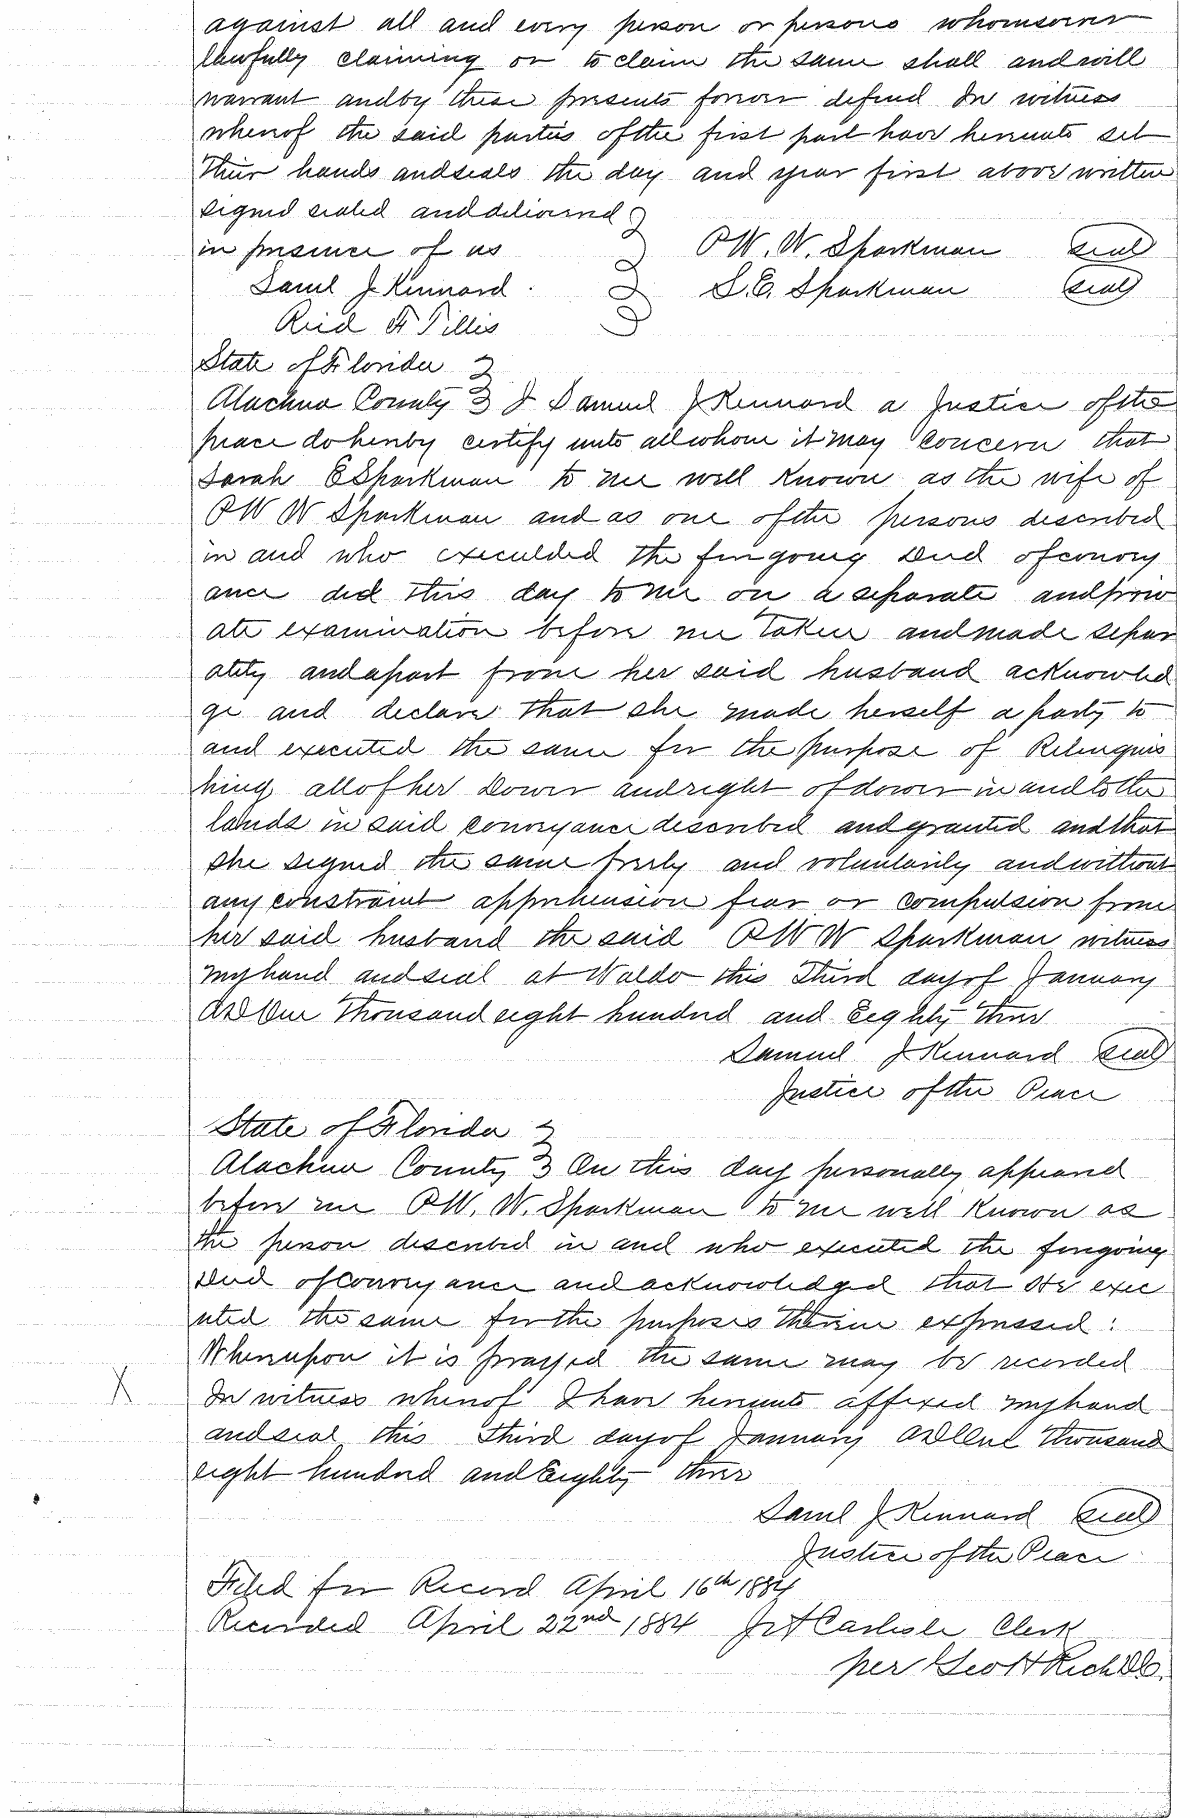 against all and every person or persons whomsoever
lawfully claiming or to claim the same shall and will
warrant and by these presents forever defend In witness
whereof the said parties of the first part have hereunto set
their hands and seals the day and year first above written
signed sealed and delivered
in presence of us P.W. W. Sparkman seal
Saml J. Kennard. S. E. Sparkman seal
Reid H Tillis
State of Florida
Alachua County I Samuel J Kennard a Justice of the
peace do hereby certify unto all whom it may concern that
Sarah E Sparkman to me well known as the wife of
P W W Sparkman and as one of the persons described
in and who executded the foregoing Deed of convey
ance did this day to me on a separate and priv
ate examination before me taken and made separ
ately and apart from her said husband acknowled
ge and declare that she made herself a party to
and executed the same for the purpose of Relinquis
hing all of her Dower and right of dower in and to the
lands in said conveyance described and granted and that
she signed the same freely and voluntarily and without
any constraint apprehension fear or compulsion from
her said husband the said P W W Sparkman witness
my hand and seal at Waldo this Third day of January
AD One thousand eight hundred and Eighty three
Samuel J Kennard seal
Justice of the Peace
State of Florida
Alachua County On this day personally appeared
before me P.W. W. Sparkman to me well known as
the person described in and who executed the foregoing
Deed of Conveyance and acknowledged that He exec
uted the same for the purposes therein expressed :
Whereupon it is prayed the same may be recorded
X In witness whereof I have hereunto affixed my hand
and seal this Third day of January AD One thousand
eight hundred and Eighty three
Saml J Kennard seal
Justice of the Peace
Filed for Record April 16th 1884
Recorded April 22nd 1884 J A Carlisle Clerk
per Geo H Rich DC.